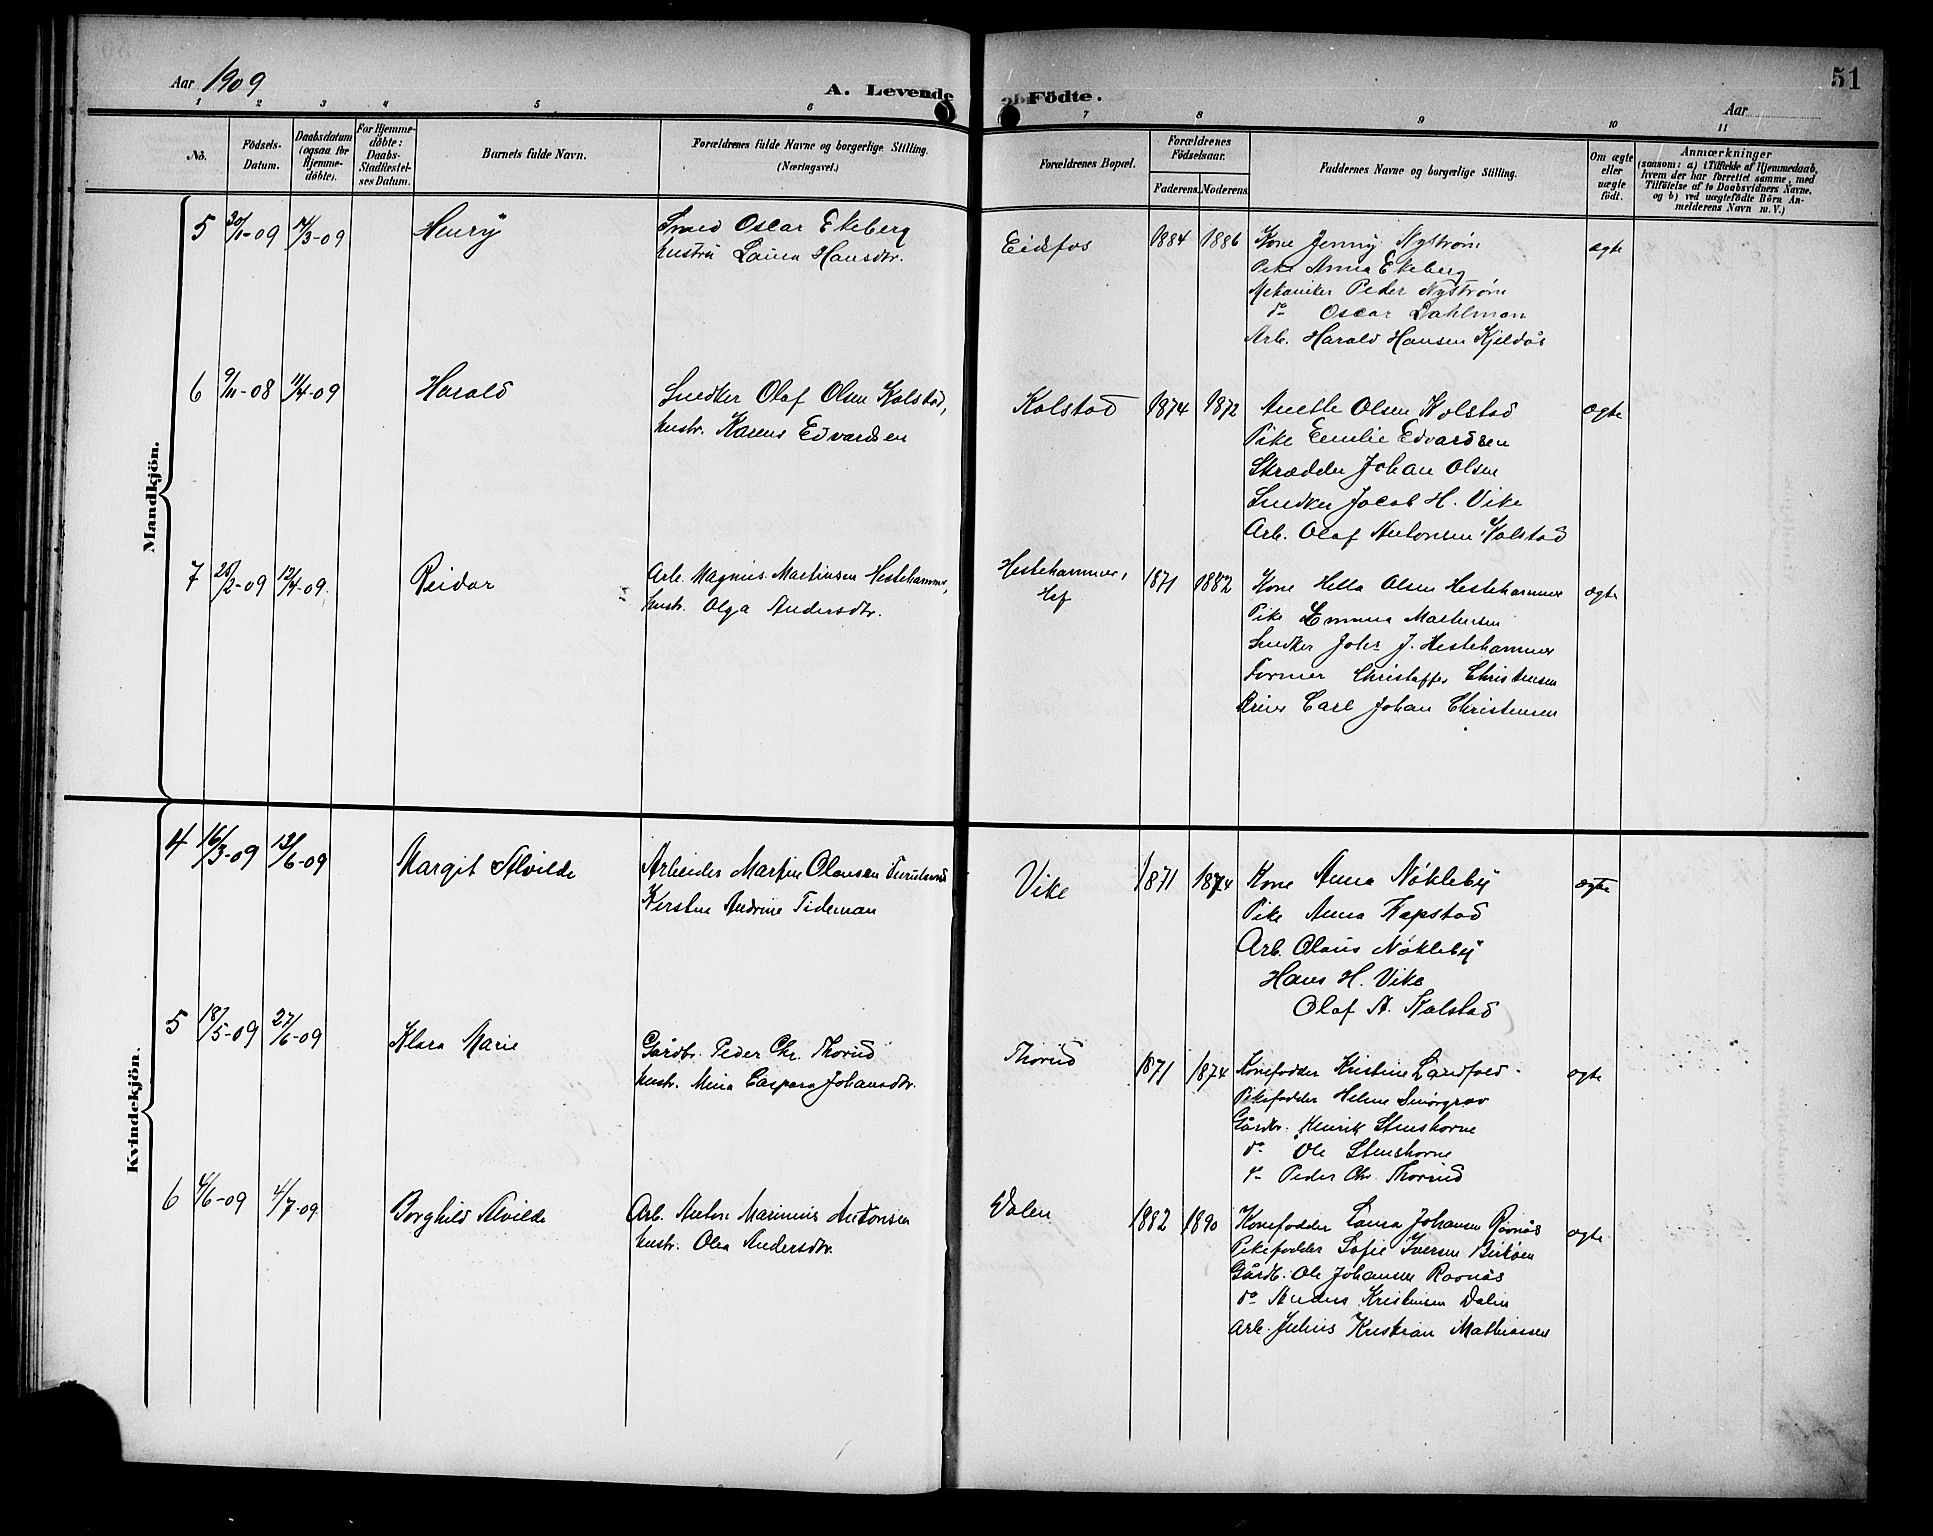 Aar 1909
A. Levende Födte.
Aar
51
1 2 3 4 5 6 7 8 9 10 11
Nö.
Födsels-Datum.
Daabsdatum (ogsaa for Hjemme-döbte).
For Hjemme-döbte: Daabs-Stadfæstel-ses Datum.
Barnets fulde Navn.
Forældrenes fulde Navne og borgerlige Stilling. (Næringsvei.)
Forældrenes Bopæl.
Forældrenes Födselsaar.
Faderens. Moderens.
Faddernes Navne og borgerlige Stilling.
Om ægte eller uægte födt.
Anmærkninger
(saasom: a) i Tilfælde af Hjemmedaab,
hvem der har forrettet samme, med
Tilföielse af to Daabsvidners Navne,
og b) ved uægtefödte Börn An-
melderens Navn m. V.)
Mandkjön.
5 30/1-09 14/3-09 Henrÿ
Smed Oscar Ekeberg
hustru Laura Hansdtr.
Eidsfos 1884 1886
Kone Jenny Nyström
Pike Anna Ekeberg
Mekaniker Peder Nyström
do Oscar Dahlman
Arb. Harald Hansen Kjeldås
ægte
6 9/11-08 11/4-09 Harald
Snedker Olaf Olsen Kolstad,
hustr. Karens Edvardsen
Kolstad 1874 1872
Anette Olsen Kolstad
Pike Emilie Edvardsen
Skrædder Johan Olsen
Snedker Jacob H. Vike
Arb. Olaf Antonsen Kolstad
ægte
7 25/2-09 12/4-09 Reidar
Arb. Magnus Martinsen Hestehammer,
hustr. Olga Andersdtr.
Hestehammer,
Hof
1871 1882
Kone Hella Olsen Hestehammer
Pike Emma Martinsen
Snedker Johs J. Hestehammer
Former Christoffer Christensen
Carl Johan Christensen
ægte
Kvindekjön.
4 16/3-09 13/6-09 Margit Alvilde
Arbeider Martin Olausen
Kirstine Andrine Tideman
Vike 1871 1874
Kone Anna Nökleby
Pike Anna Kapstad
Arb. Olaus Nökleby
Hans H. Vike
Olaf A. Kolstad
ægte
5 18/5-09 27/6-09 Klara Marie
Gårdbr. Peder Chr. Thorud
hustr. Mina Caspara Johansdtr.
Thorud 1871 1874
Konefadder Kristine Landfald
Pikefadder Helene Smörgrav
Gårdbr. Henrik Stenshorne
do Ole Stenshorne
do Peder Chr. Thorud
ægte
6 4/6-09 4/7-09 Borghild Alvilde
Arb. Anton Marinius Antonsen
hustr. Olea Andersdtr.
Dalen 1882 1890
Konefadder Laura Johansen Raanås
Pikefadder Sofie Iversen
Gårdb. Ole Johansen Raanås
do Anders Kristensen Dalen
Arb. Julius Kristian Mathiassen
ægte